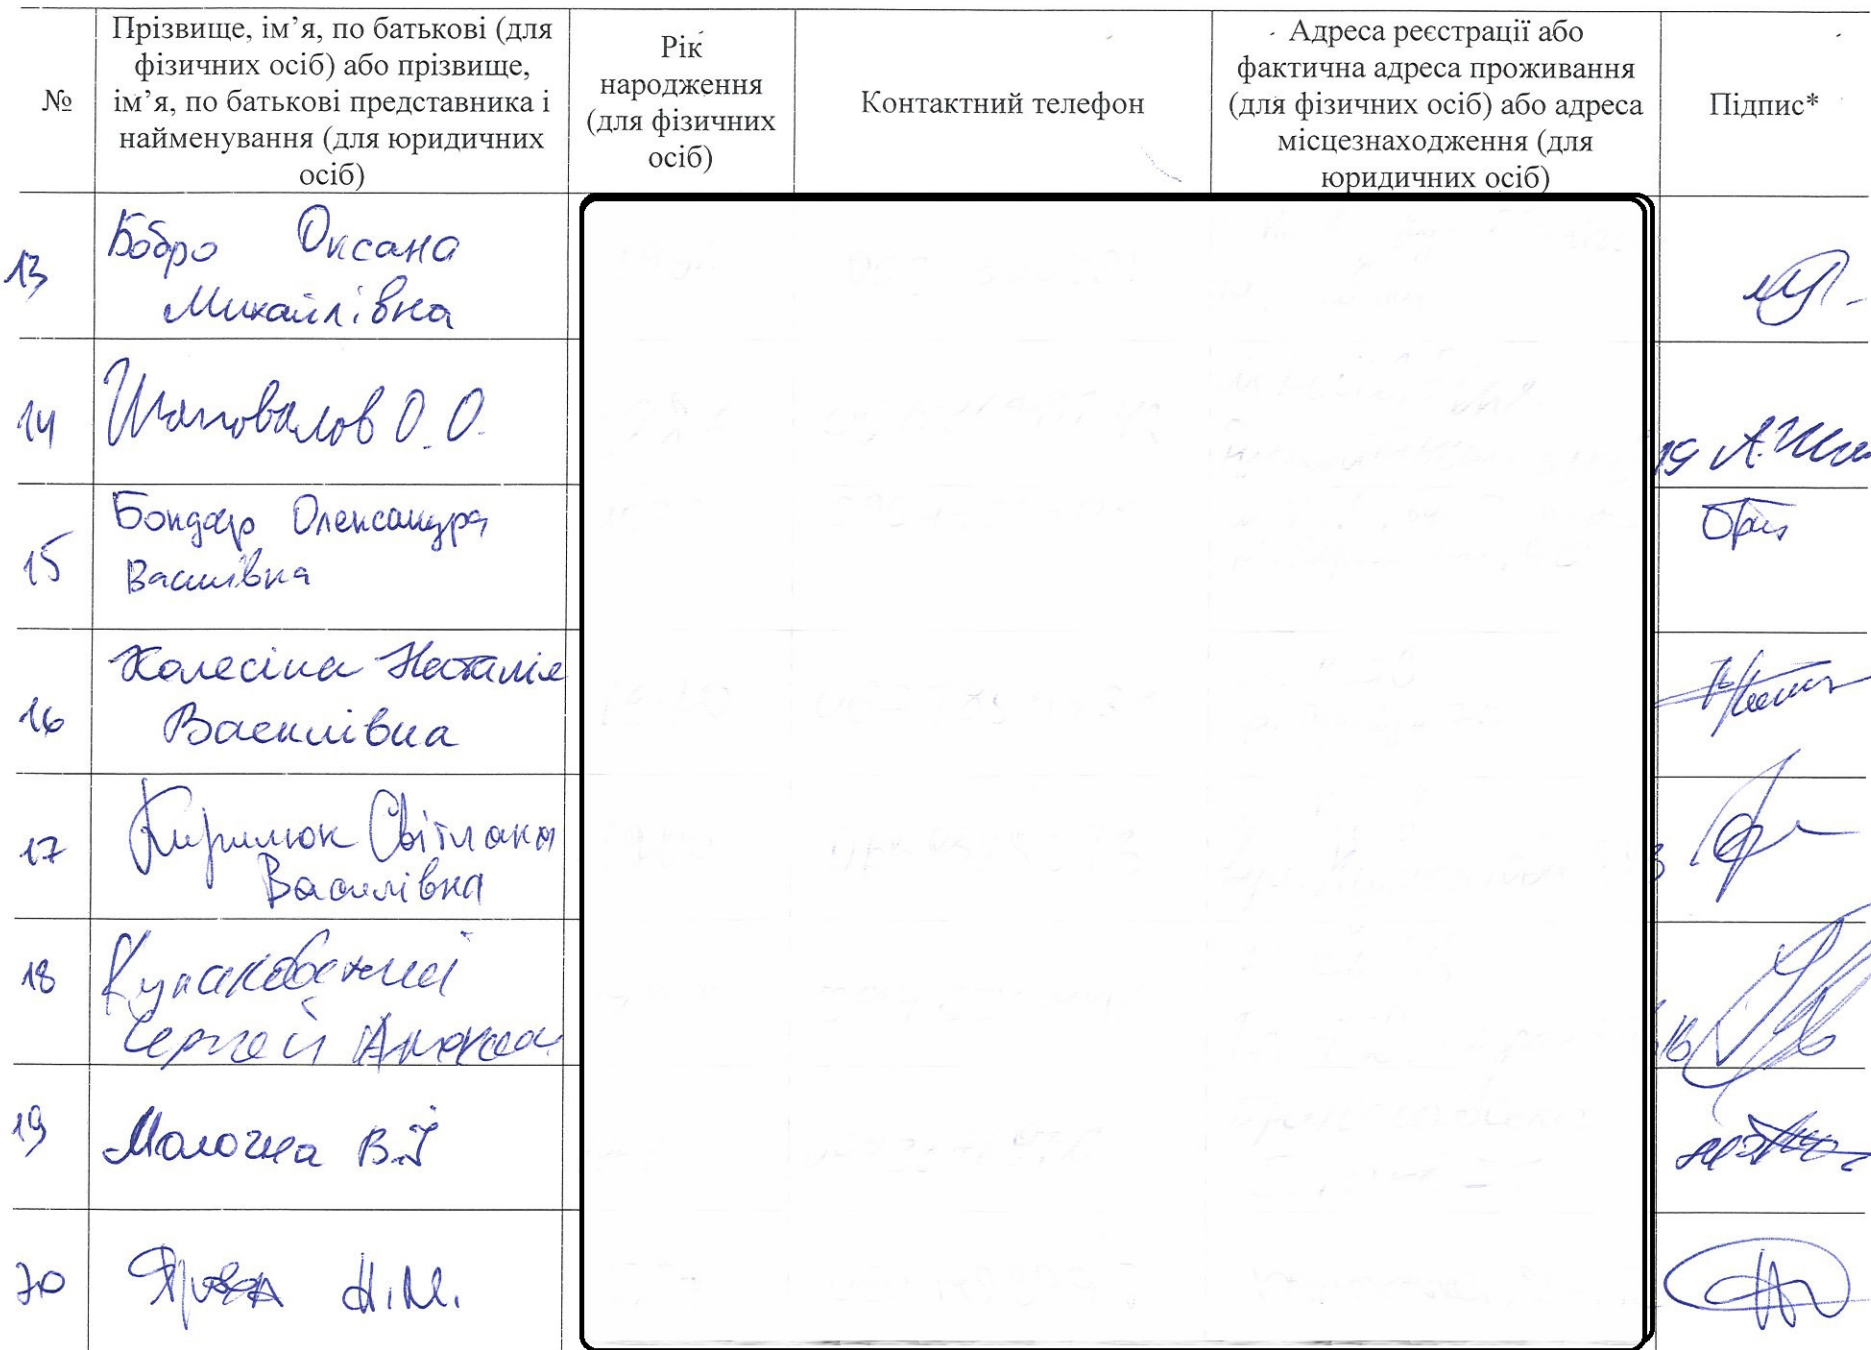 №
Прізвище, ім’я, по батькові (для
фізичних осіб) або прізвище,
ім’я, по батькові представника і
найменування (для юридичних
осіб)
Рік
народження
(для фізичних
осіб)
Контактний телефон
Адреса реєстрації або
фактична адреса проживання
(для фізичних осіб) або адреса
місцезнаходження (для
юридичних осіб)
Підпис*
13
Бобро Оксана
Михайлівна
14
Шаповалов О.О.
15
Бондар Олександра
Василівна
16
Колесіна Наталія
Василівна
17
Кирилюк Світлана
Василівна
18
Сергей
19
Молочна В.І
20
Н.М.